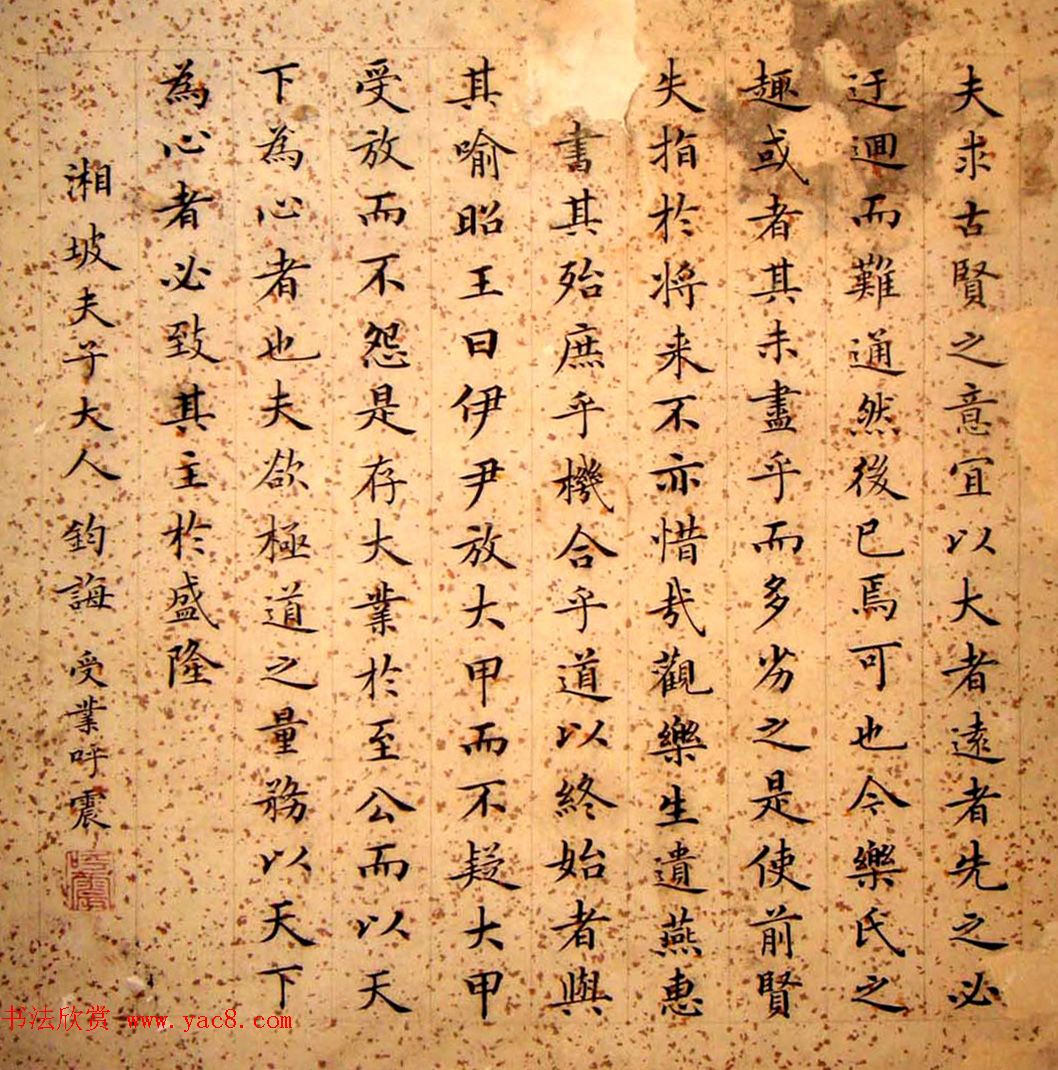 夫求古賢之意宜以大者遠者先之必
迂迴而難通然後已焉可也今樂氏之
趣或者其未盡乎而多劣之是使前賢
失指於将来不亦惜哉觀樂生遺燕惠
書其殆庶乎機合乎道以終始者與
其喻昭王曰伊尹放大甲而不疑大甲
受放而不怨是存大業於至公而以天
下為心者也夫欲極道之量務以天下
為心者必致其主於盛隆
湘坡夫子大人 鈞誨 受業呼震
书法欣赏 www.yac8.com